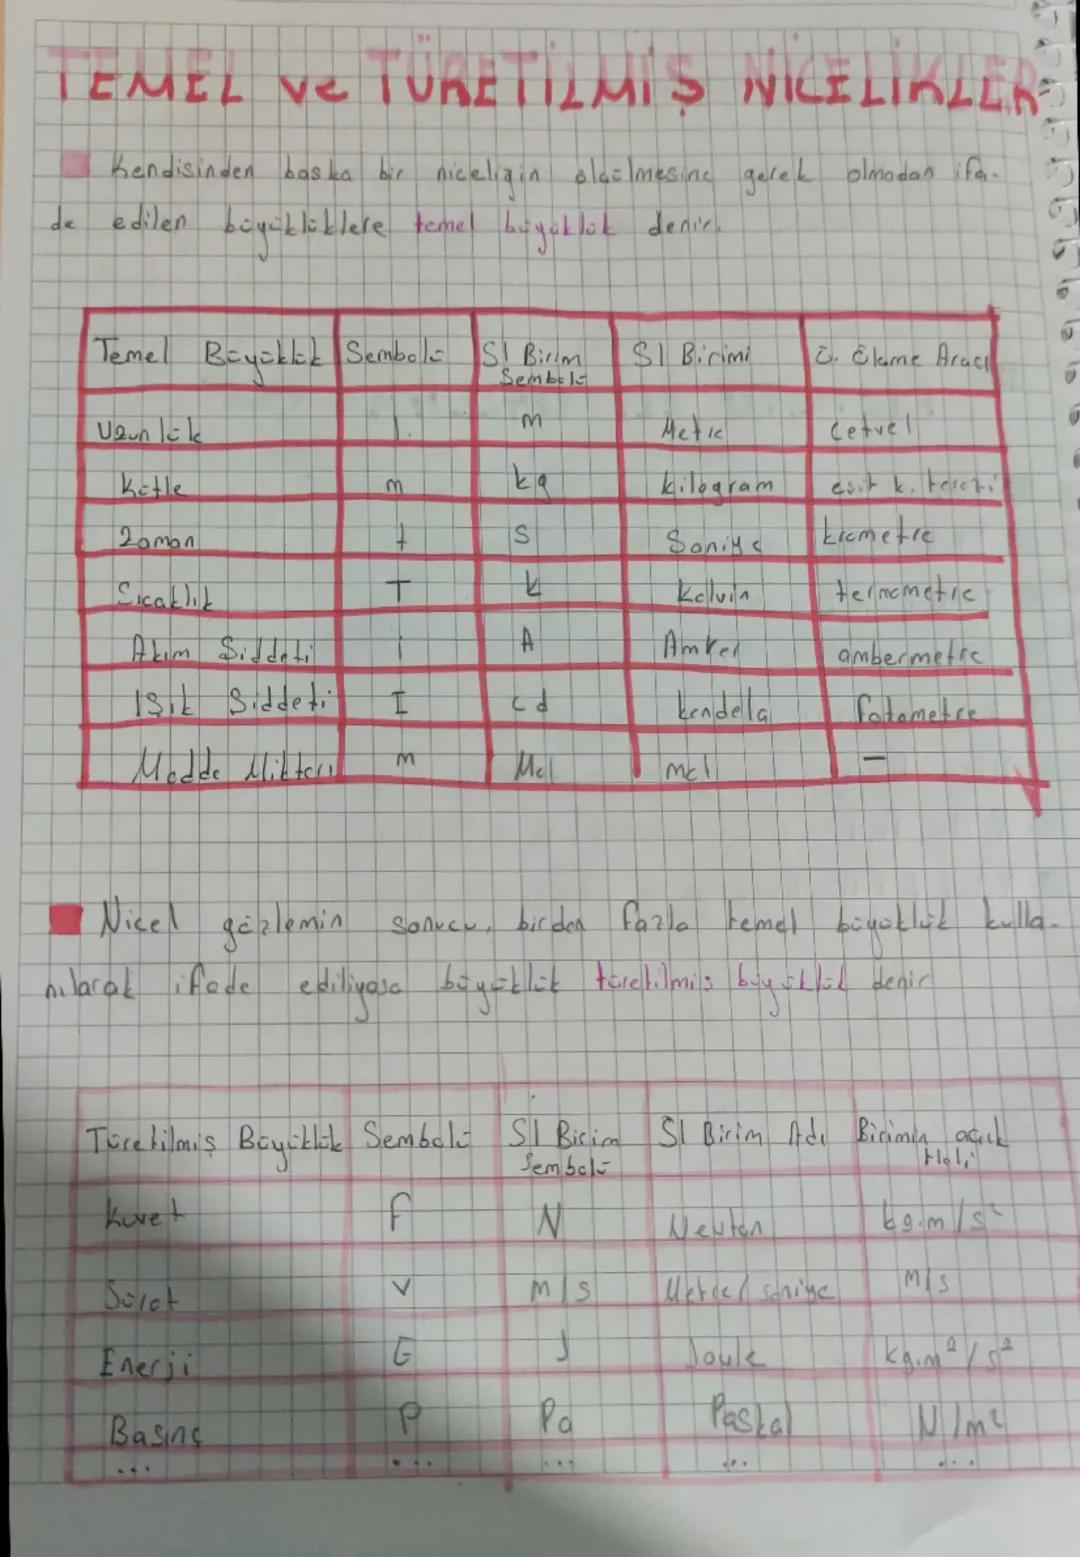 TEMEL ve TÜRETİLMİŞ NİCELİKLER
Kendisinden baska bir niceligin ölçülmesine gerek olmadan ifa-
de edilen büyüklüklere temel büyüklük denir.
Temel Büyüklük Sembolü SI Birim Sembolü SI Birimi Ö. Ölçme Aracı
Uzunlük l m Metre Cetvel
Kütle m kg kilogram eşit k. terazi
Zaman t s Saniye krometre
Sıcaklık T k Kelvin termometre
Akım Şiddeti i A Amper ambermetre
Işık Şiddeti I cd kandela fotometre
Madde Miktarı m Mol mol —
Nicel gözlemin sonucu, birden fazla temel büyüklük kulla-
nılarak ifade ediliyosa büyüklük türetilmiş büyüklük denir
Türetilmiş Büyüklük Sembolü SI Birim Sembolü SI Birim Adı Birimin açık Hali
Kuvet F N Newton kg.m/s²
Sürat v m/s Metre/saniye m/s
Enerji E J Joule kg.m²/s²
Basınç P Pa Paskal N/m²
... ... ... ... ...